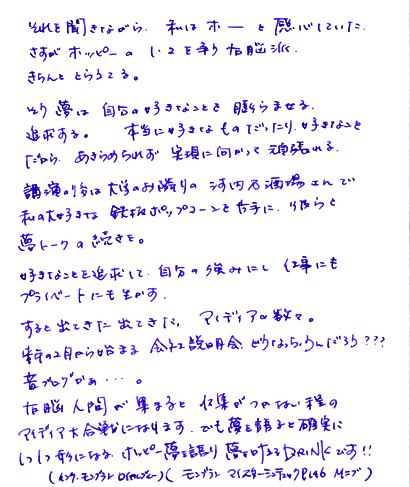 それを聞きながら、私はホーと感心していた。
さすがホッピーの1、2を争う右脳派。
きちんととらえてる。
そう夢は自分の好きなことを膨らませる、
追求する。本当に好きなものだったり、好きなこと
だから、あきらめられず実現に向かって頑張れる。
講演の後は大学のお隣りの河内乃酒場さんで
私の大好きな鉄板ポップコーンを片手に、彼らと
夢トークの続きを。
好きなことを追求して、自分の強みにし仕事にも
プライベートにも生かす。
すると出てきた出てきた、アイディアの数々。
来年の2月から始まる会社説明会、どうなっちゃうんだろう???
音ブログがぁ・・・。
右脳人間が集まると収集がつかない程の
アイディア大合戦になります。でも夢を語ると確実に
1つ1つ形になる。ホッピー夢を語り夢を叶えるDRINKです!!
(インク、モンブラン)(モンブラン マイスターシュテュックP146 Mニブ)